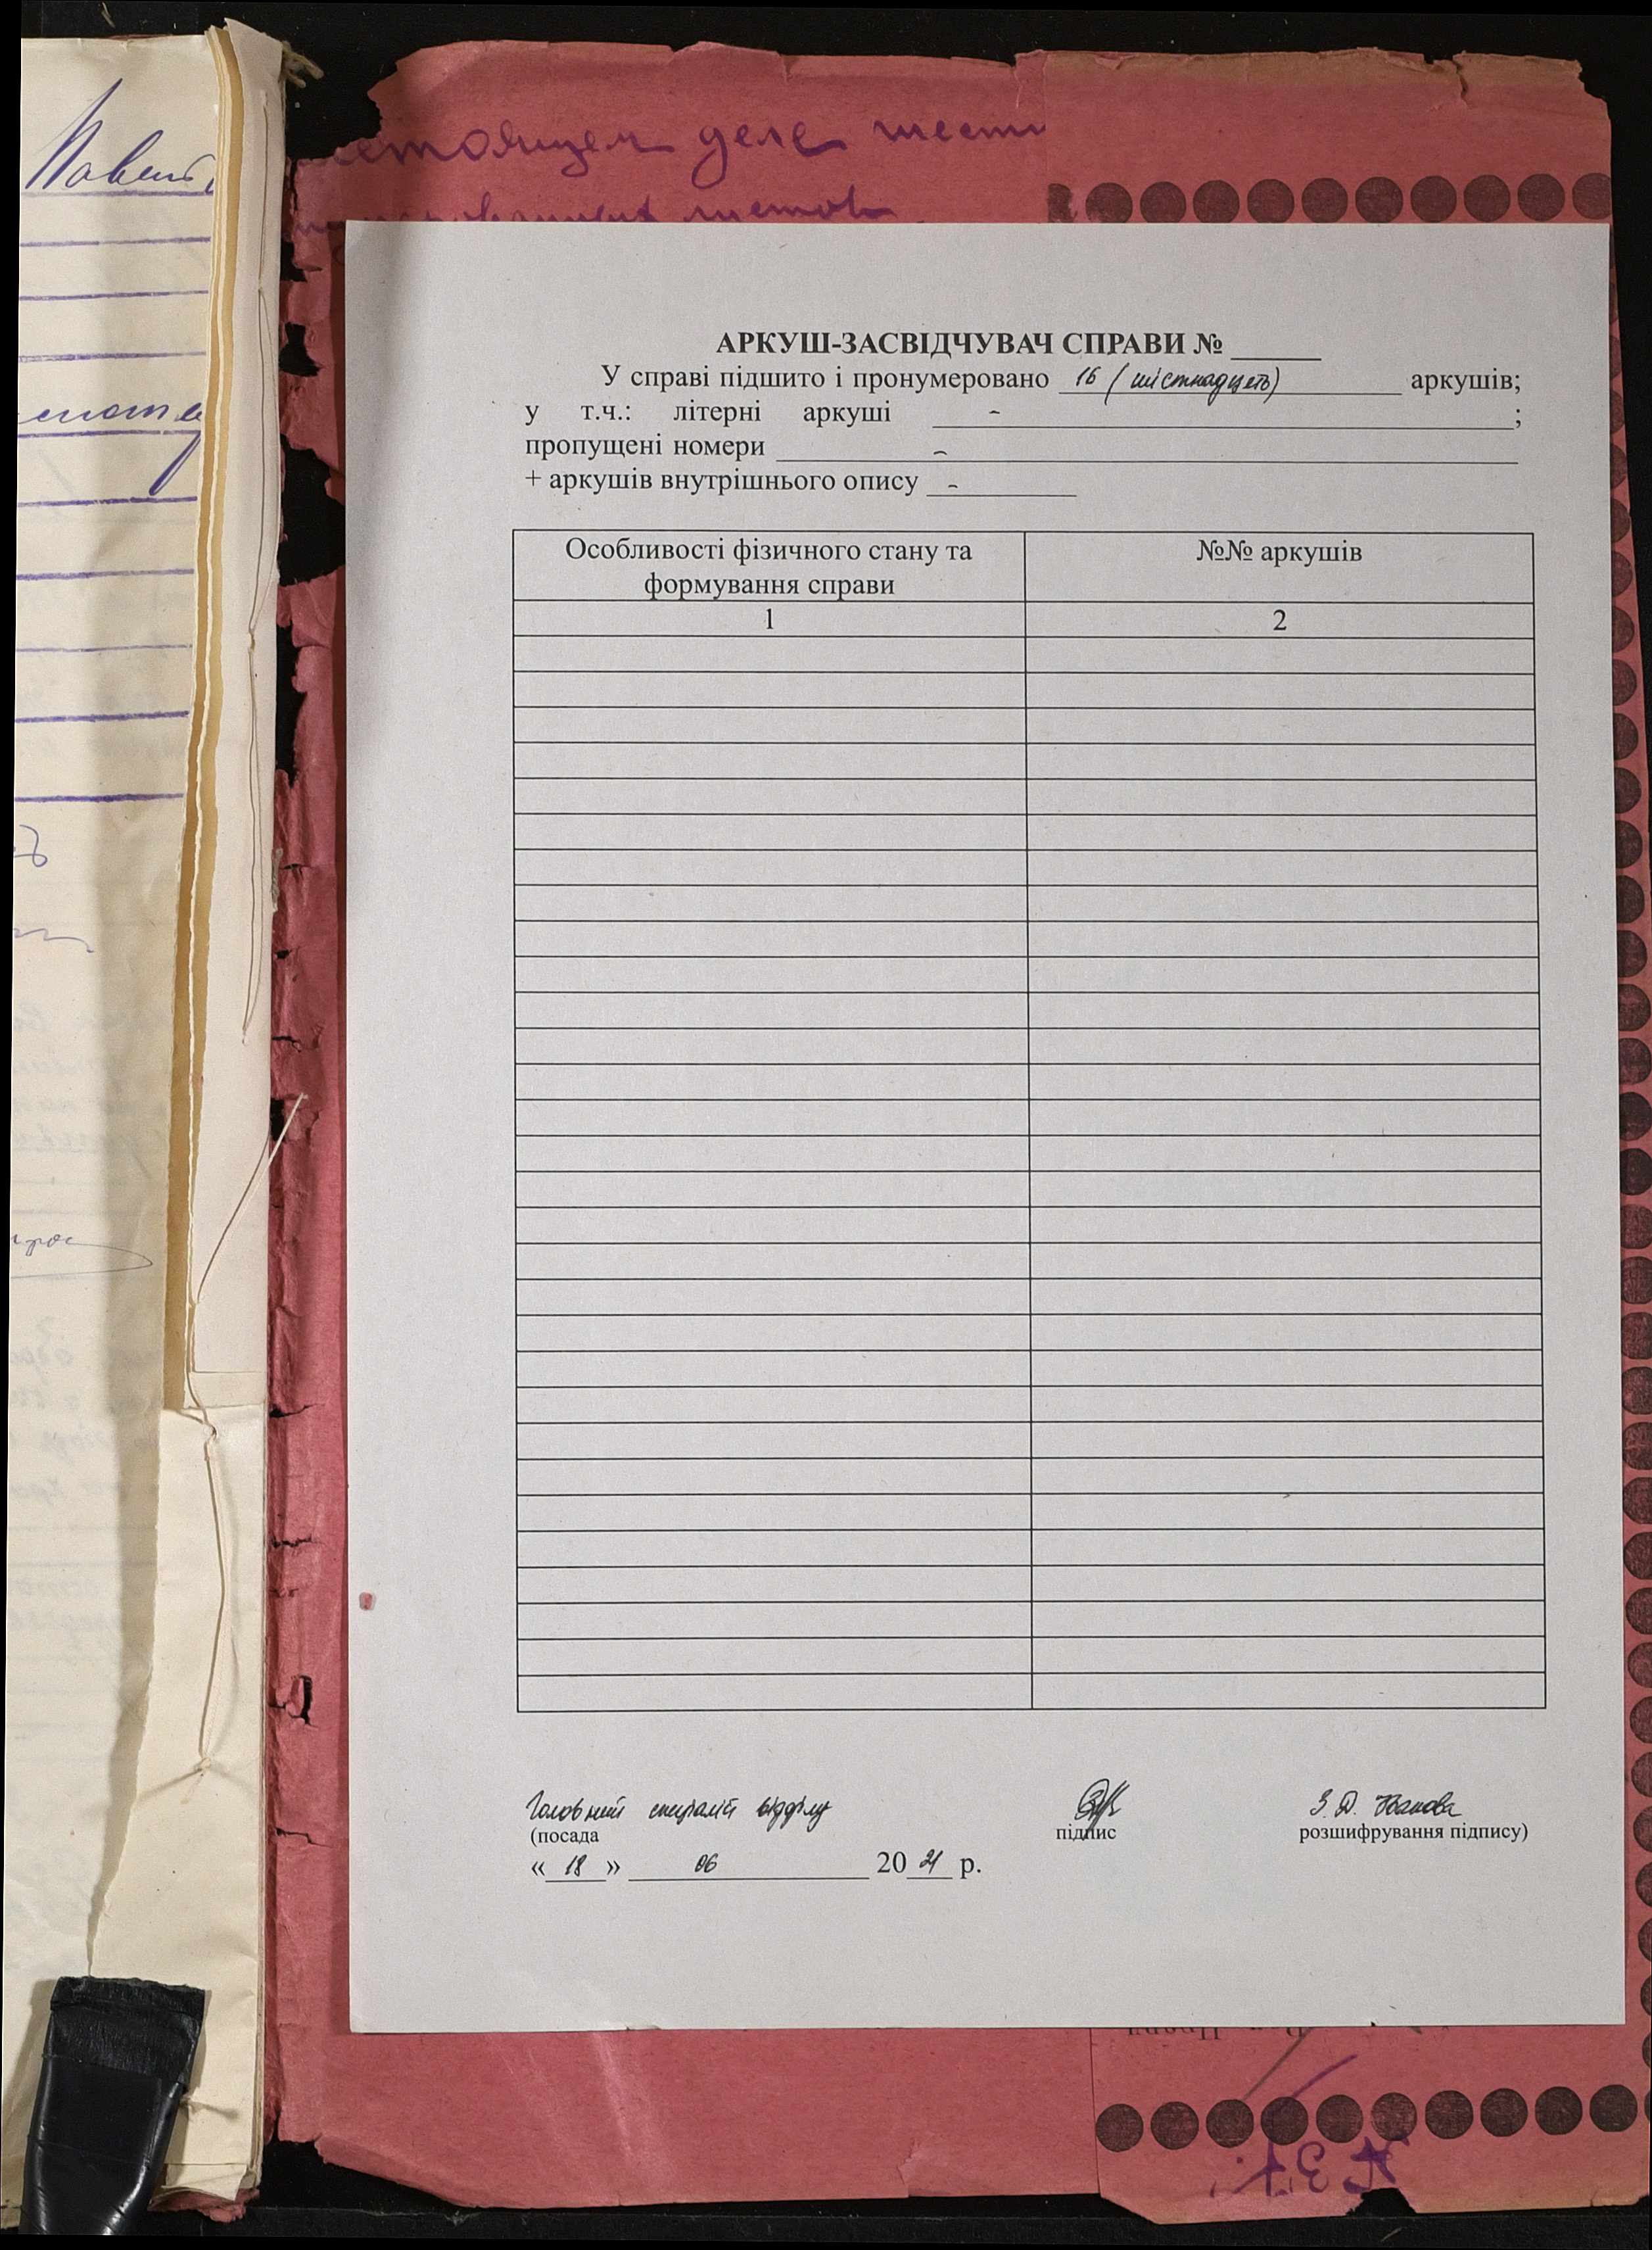 деле
листов
АРКУШ-ЗАСВІДЧУВАЧ СПРАВИ № ______
У справі підшито і пронумеровано 16 (шістнадцять) аркушів;
у т.ч.: літерні аркуші - ;
пропущені номери -
+ аркушів внутрішнього опису -
Особливості фізичного стану та формування справи
№№ аркушів
1 2
Головний спеціаліст відділу
З. Д. Іванова
(посада підпис розшифрування підпису)
« 18 » 06 20 21 р.